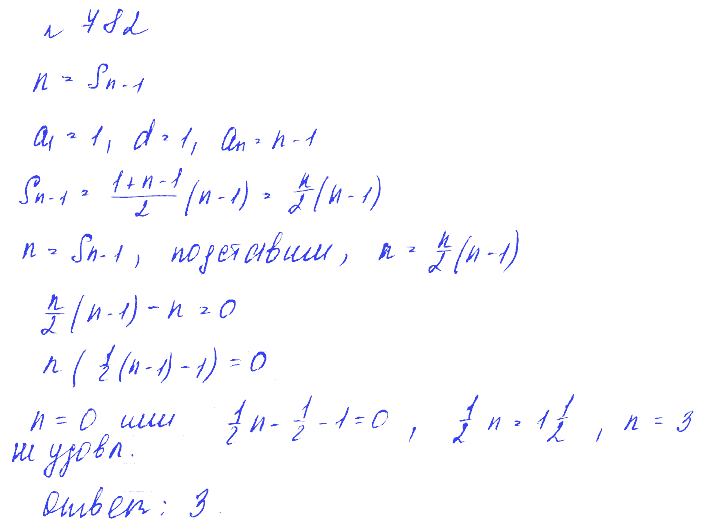 № 782
n = Sn-1
a1 = 1, d = 1, an = n-1
Sn-1 = (1+n-1)/2 (n-1) = n/2 (n-1)
n = Sn-1, подставим, n = n/2 (n-1)
n/2 (n-1) - n = 0
n ( 1/2 (n-1) - 1) = 0
n = 0 или 1/2 n - 1/2 - 1 = 0, 1/2 n = 1 1/2, n = 3
не удовл.
Ответ: 3.